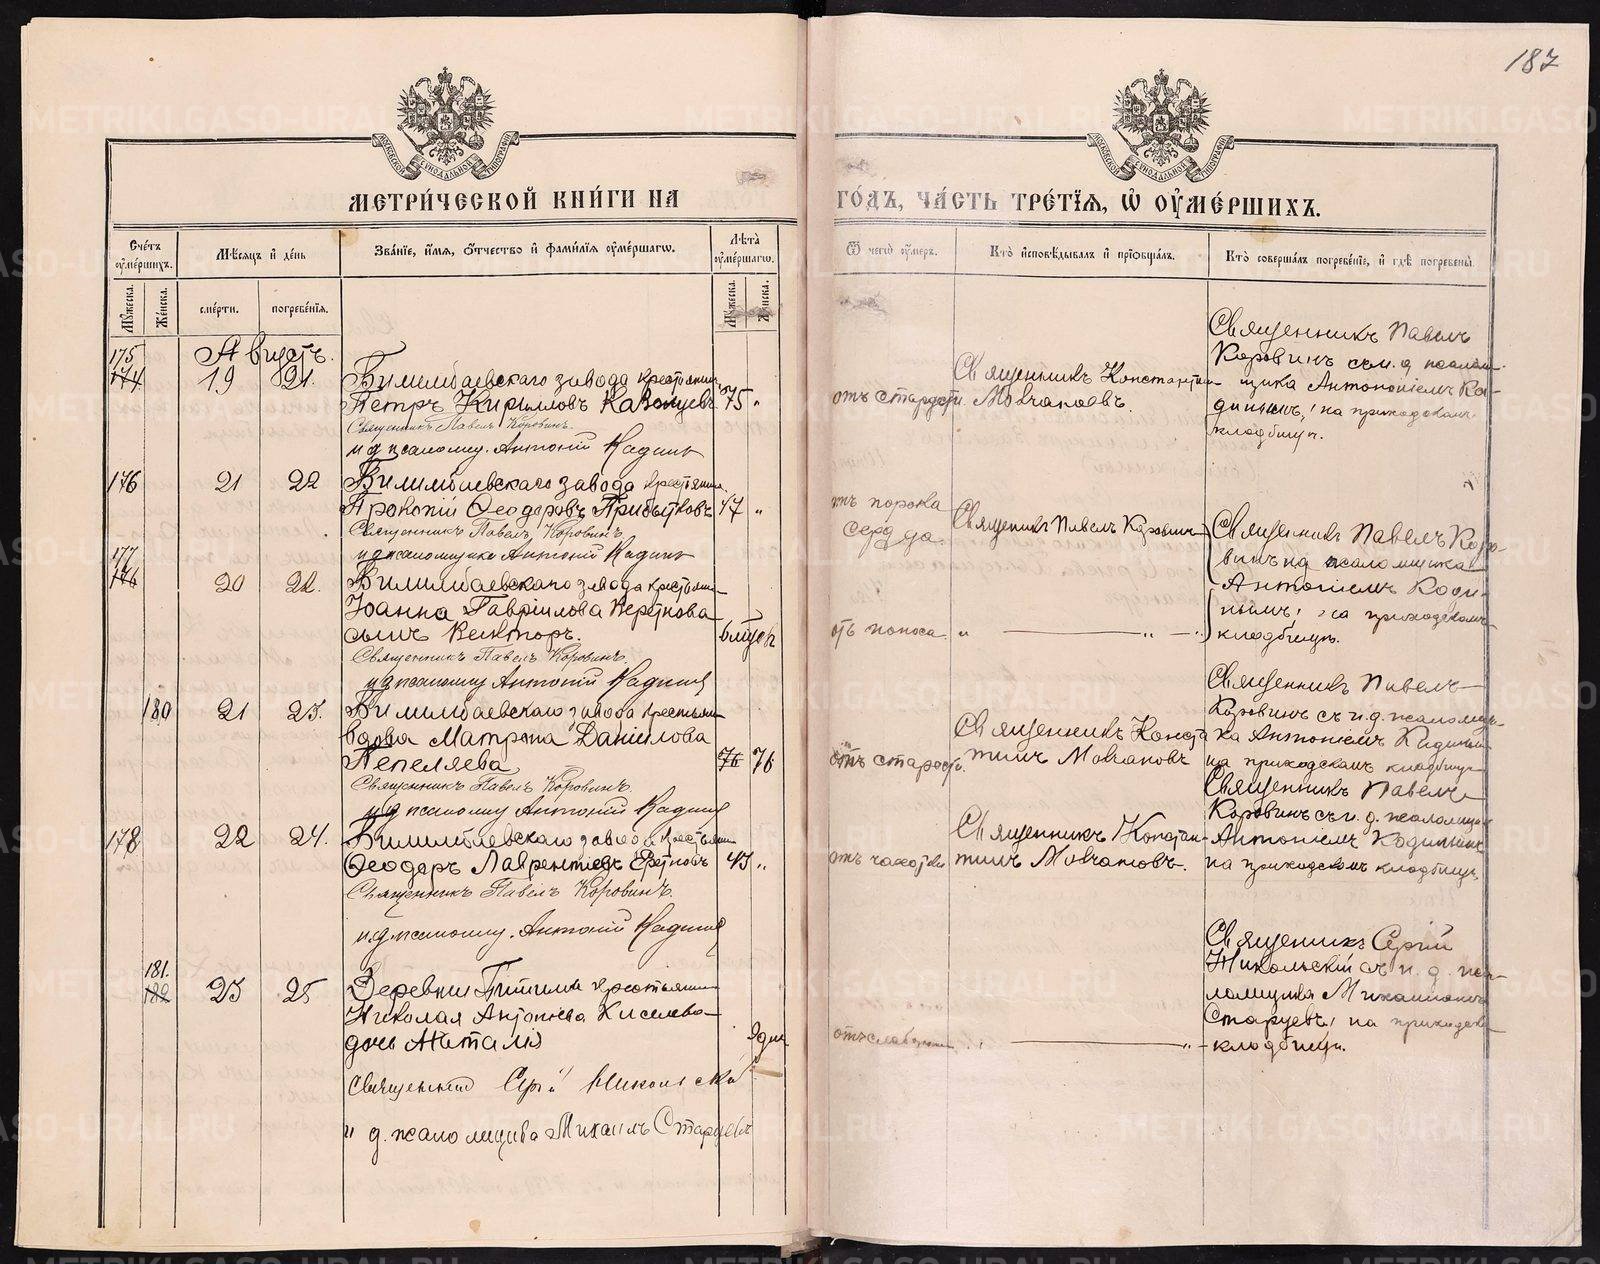 187
МОСКОВСКОЙ СѴНОДАЛЬНОЙ ТИПОГРАФІИ
МОСКОВСКОЙ СѴНОДАЛЬНОЙ ТИПОГРАФІИ
МЕТРИ́ЧЕСКОЙ КНИ́ГИ НА ГО́ДЪ, ЧА́СТЬ ТРЕ́ТЇѦ, Ѡ ОУ҆МЕ́РШИХЪ.
Сче́тъ оу҆ме́ршихъ.
Мѣ́сяцъ и҆ де́нь
Зва́нїе, и҆́мѧ, ѻ҆́тчество и҆ фамі́лїѧ оу҆ме́ршагѡ.
Лѣ́та оу҆ме́ршагѡ.
Ѿ чегѡ̀ оу҆́меръ.
Кто̀ и҆сповѣ́дывалъ и҆ прїѡбща́лъ.
Кто̀ соверша́лъ погребе́нїе, и҆ гдѣ̀ погребены̀.
Мꙋ́жеска.
Же́нска.
сме́рти.
погребе́нїѧ.
Мꙋ́жеска.
Же́нска.
Августъ.
175
174 19 21. Билимбаевскаго завода крестьянинъ
Петръ Кирилловъ 75 "
Священникъ Павелъ Коровинъ.
и д псаломщ. Антоній Кадинъ
отъ старости.
Священникъ Константин
Мовчановъ.
Священникъ Павелъ
Коровинъ съ и. д псалом-
щика Антоніемъ Ка-
динымъ, на приходскомъ
кладбищѣ.
176 21 22 Билимбаевскаго завода крестьянинъ
Прокопій Ѳеодоровъ Прибытковъ 47 "
Священникъ Павелъ Коровинъ.
и д псаломщика Антоній Кадинъ
отъ порока
сердца.
Священникъ Павелъ Коровинъ
Священникъ Павелъ Коро-
винъ и д псаломщика
Антоніемъ Кади-
нымъ, на приходскомъ
кладбищѣ.
177
176 20 22. Билимбаевскаго завода крестьян
Іоанна Гавріилова
сынъ Викторъ. 6 мѣсяц
Священникъ Павелъ Коровинъ.
и д псаломщ Антоній Кадинъ
отъ поноса. " — " —
180 21 23. Билимбаевскаго завода крестьян
вдова Матрона Даніилова
Пепеляева 76 76
Священникъ Павелъ Коровинъ.
и д псаломщ Антоній Кадинъ
отъ старости.
Священникъ Конста
тинъ Мовчановъ
Священникъ Павелъ
Коровинъ съ и. д. псаломщи-
ка Антоніемъ Кадинымъ
на приходскомъ кладбищѣ
178 22 24. Билимбаевскаго завода крестьянин
Ѳеодоръ Лаврентіевъ 43 "
Священникъ Павелъ Коровинъ.
и.д. псаломщ. Антоній Кадинъ
отъ чахотки
Священникъ Констан-
тинъ Мовчановъ.
Священникъ Павелъ
Коровинъ съ и. д. псаломщик
Антоніемъ Кадинымъ
на приходскомъ кладбищѣ,
181.
182 23 25 Деревни крестьянин
Николая Антоніева Киселева
дочь Наталія 9 дн
Священникъ Сергій Никольскій
и д. псаломщика Михаилъ Старцевъ
отъ слабости " — "
Священникъ Сергій
Никольскій съ и. д. пса-
ломщика Михаиломъ
Старцевъ, на приходском
кладбищѣ.
METRIKI.GASO-URAL.RU